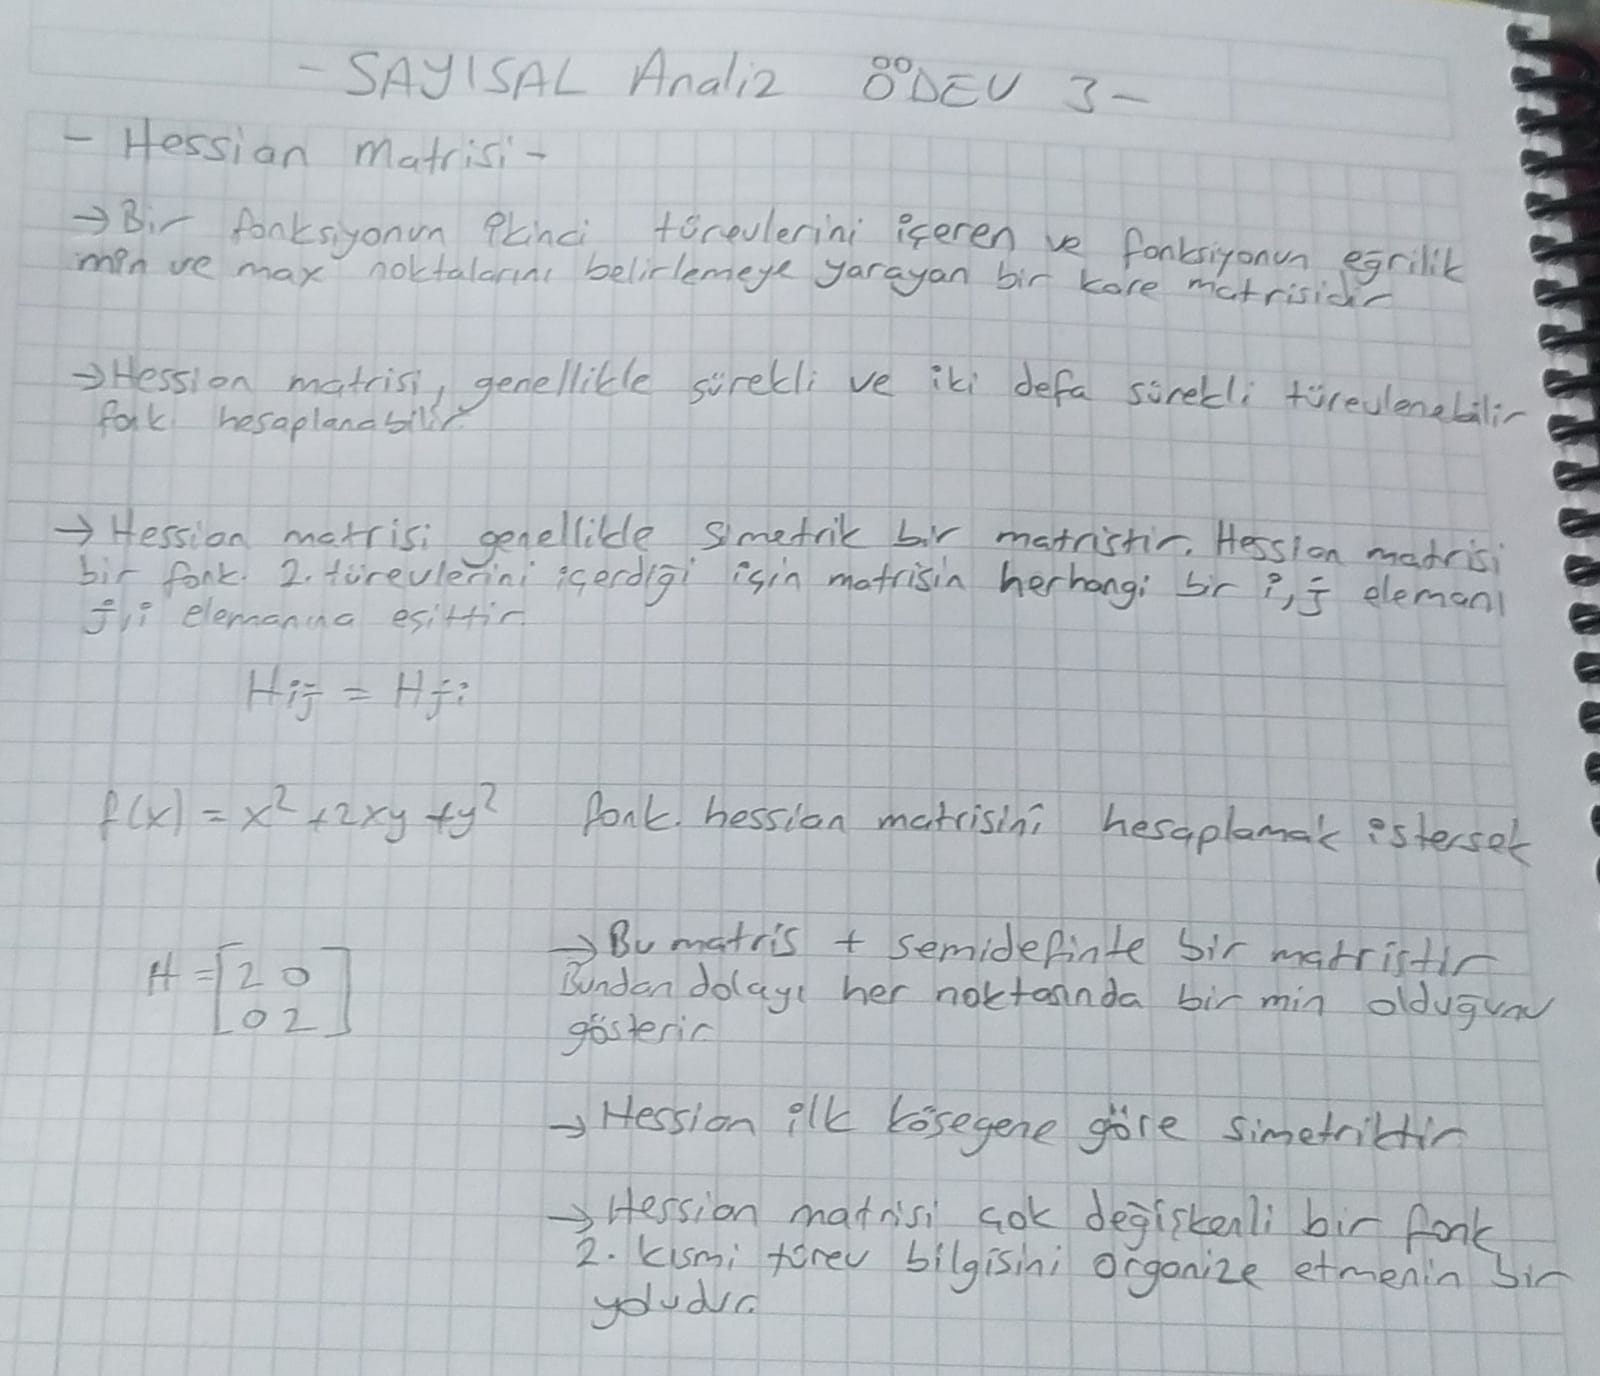 - SAYISAL Analiz ÖDEV 3 -
- Hessian Matrisi -
→ Bir fonksiyonun ikinci türevlerini içeren ve fonksiyonun eğrilik
min ve max noktalarını belirlemeye yarayan bir kare matrisidir
→ Hession matrisi, genellikle sürekli ve iki defa sürekli türevlenebilir
fonk hesaplanabilir
→ Hession matrisi genellikle simetrik bir matristir. Hession matrisi
bir fonk. 2. türevlerini içerdiği için matrisin herhangi bir i,j elemanı
j,i elemanına esittir
Hij = Hji
f(x) = x² + 2xy + y² fonk. hessian matrisini hesaplamak istersek
H = [2 0
0 2]
→ Bu matris + semidefinte bir matristir
Bundan dolayı her noktasında bir min olduğunu
gösterir
→ Hession ilk kösegene göre simetriktir
→ Hession matrisi çok değiskenli bir fonk
2. kısmi türev bilgisini organize etmenin bir
yoludur